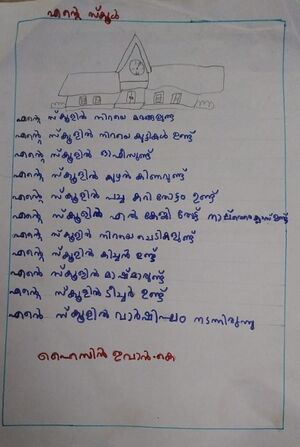 എന്റെ സ്കൂൾ
എന്റെ സ്കൂളിൽ നിറയെ മരങ്ങളുണ്ട്
എന്റെ സ്കൂളിൽ നിറയെ കുട്ടികൾ ഉണ്ട്
എന്റെ സ്കൂളിൽ ഓഫീസുണ്ട്
എന്റെ സ്കൂളിൽ കുഴൽ കിണറുണ്ട്
എന്റെ സ്കൂളിൽ പച്ച കറി തോട്ടം ഉണ്ട്
എന്റെ സ്കൂളിൽ എൽ കേജി തൊട്ട് നാലാം ക്ലാസ് ഉണ്ട്
എന്റെ സ്കൂളിൽ നിറയെ ചെടികളുണ്ട്
എന്റെ സ്കൂളിൽ കിച്ചൻ ഉണ്ട്
എന്റെ സ്കൂളിൽ മാഷ്മാരുണ്ട്
എന്റെ സ്കൂളിൽ ടീച്ചർ ഉണ്ട്
എന്റെ സ്കൂളിൽ വാർഷികം നടന്നിരുന്നു
ഹൈസിൻ ഇവാൻ.കെ